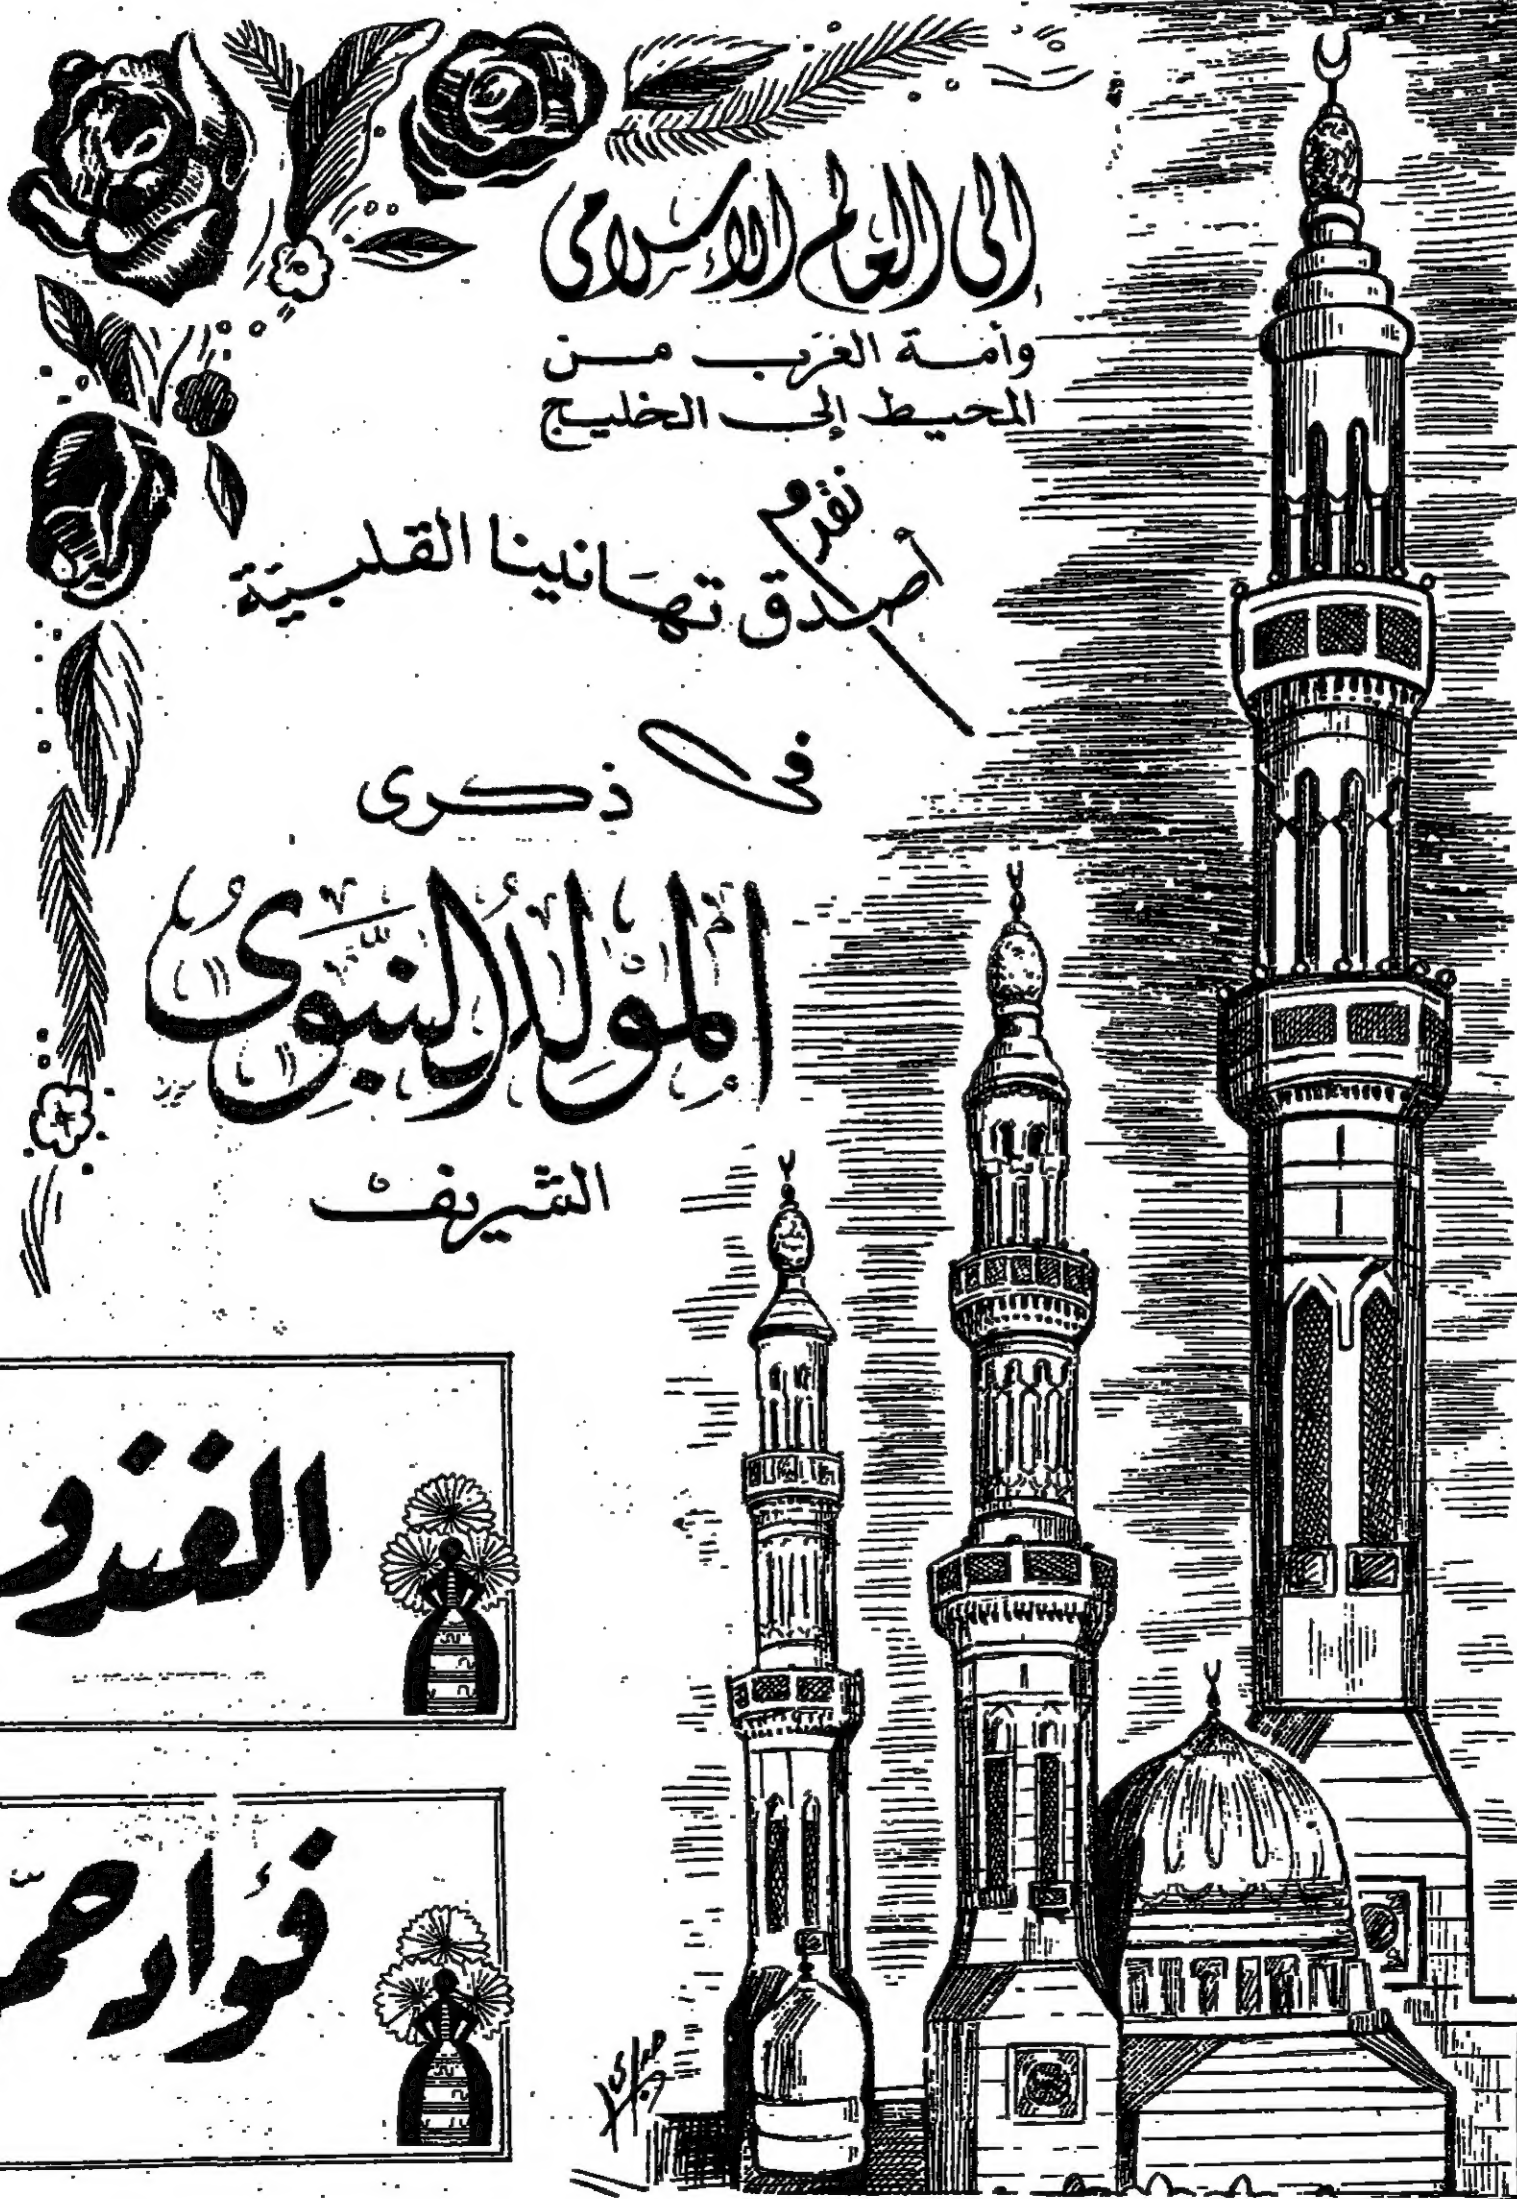 إلى العالم الإسلامى
وأمة العرب من
المحيط إلى الخليج
نقدم
أصدق تهانينا القلبية
فى ذكرى
المولد النبوى
الشريف
فؤاد